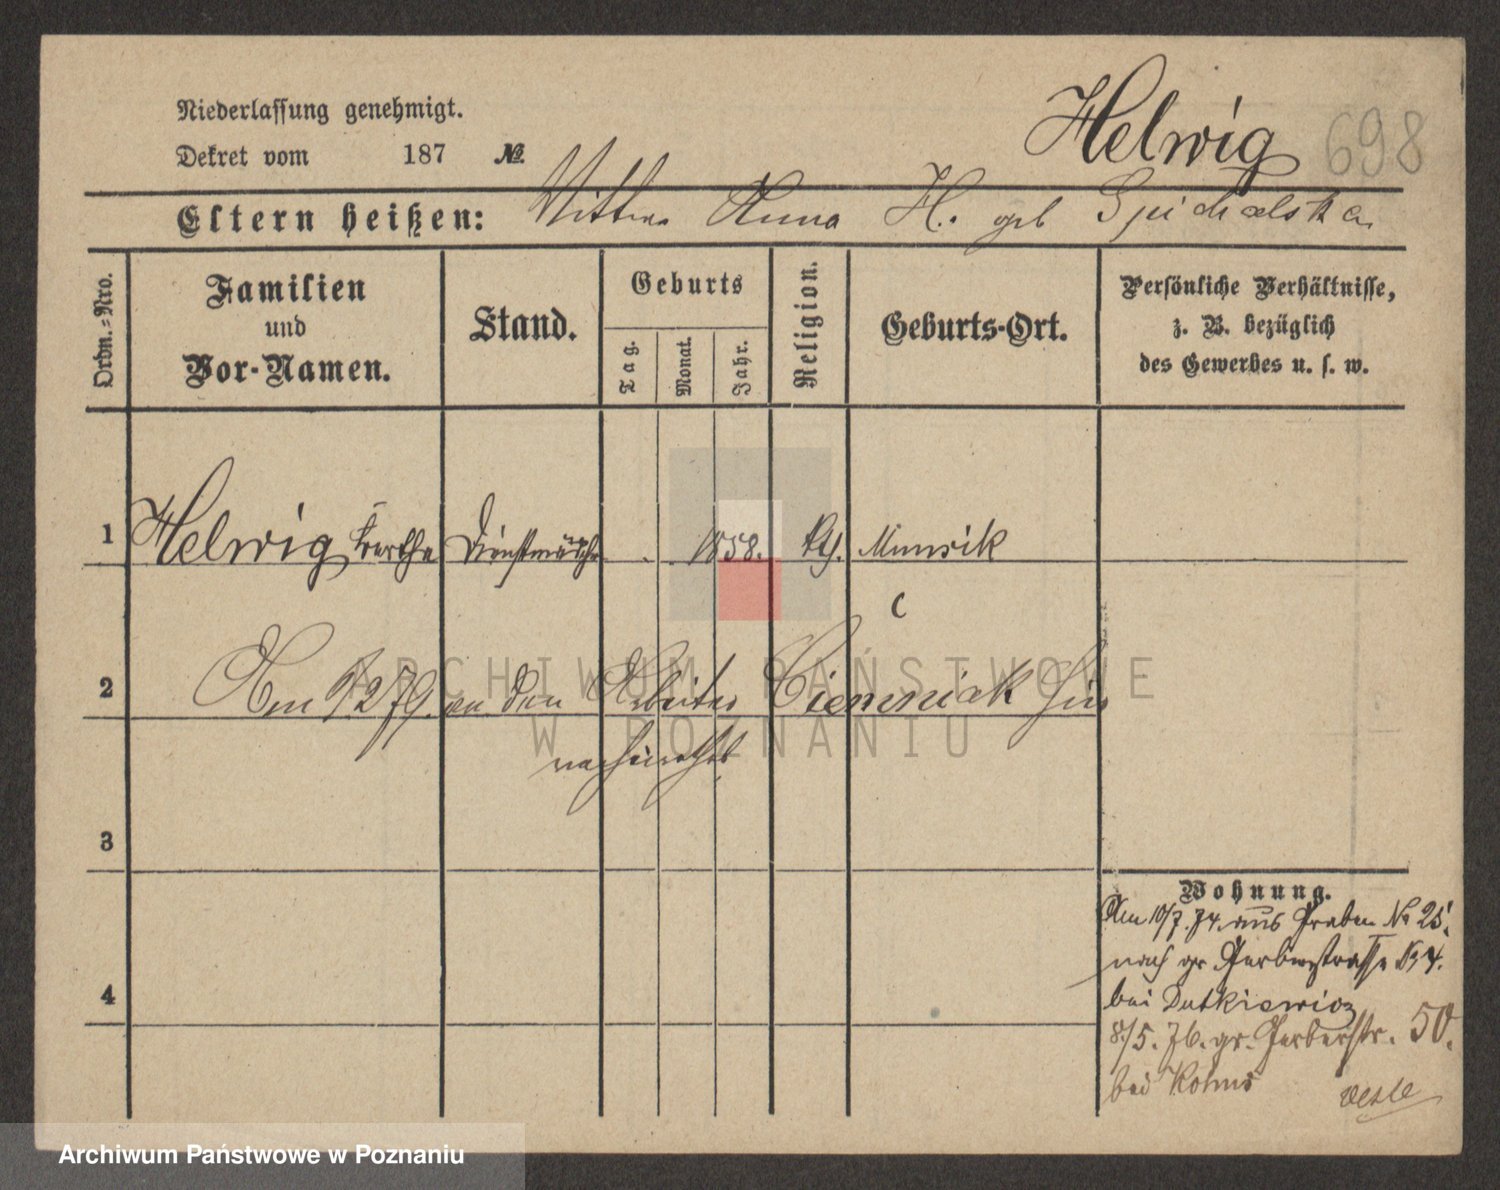 Niederlassung genehmigt.
Helwig 698
Dekret vom 187 №
Eltern heißen: Mutter Anna H. geb Spichalska
Ordn.-Nro.
Familien
und
Vor-Namen.
Stand.
Geburts
Tag.
Monat.
Jahr.
Religion.
Geburts-Ort.
Persönliche Verhältnisse,
z. B. bezüglich
des Gewerbes u. s. w.
1 Helwig Bertha Dienstmädch 1858. Murosik
2 Am 9.2 79. an den Arbeiter Ciemniak hier
verheirathet
3
Wohnung.
Am 10/7. 74. aus Graben No 25.
nach gr Gerberstrasse No 4.
4
bei Dutkiewicz
8/5. 76. gr. Gerberstr. 50.
bei Kohns
ARCHIWUM PAŃSTWOWE
W POZNANIU
Archiwum Państwowe w Poznaniu